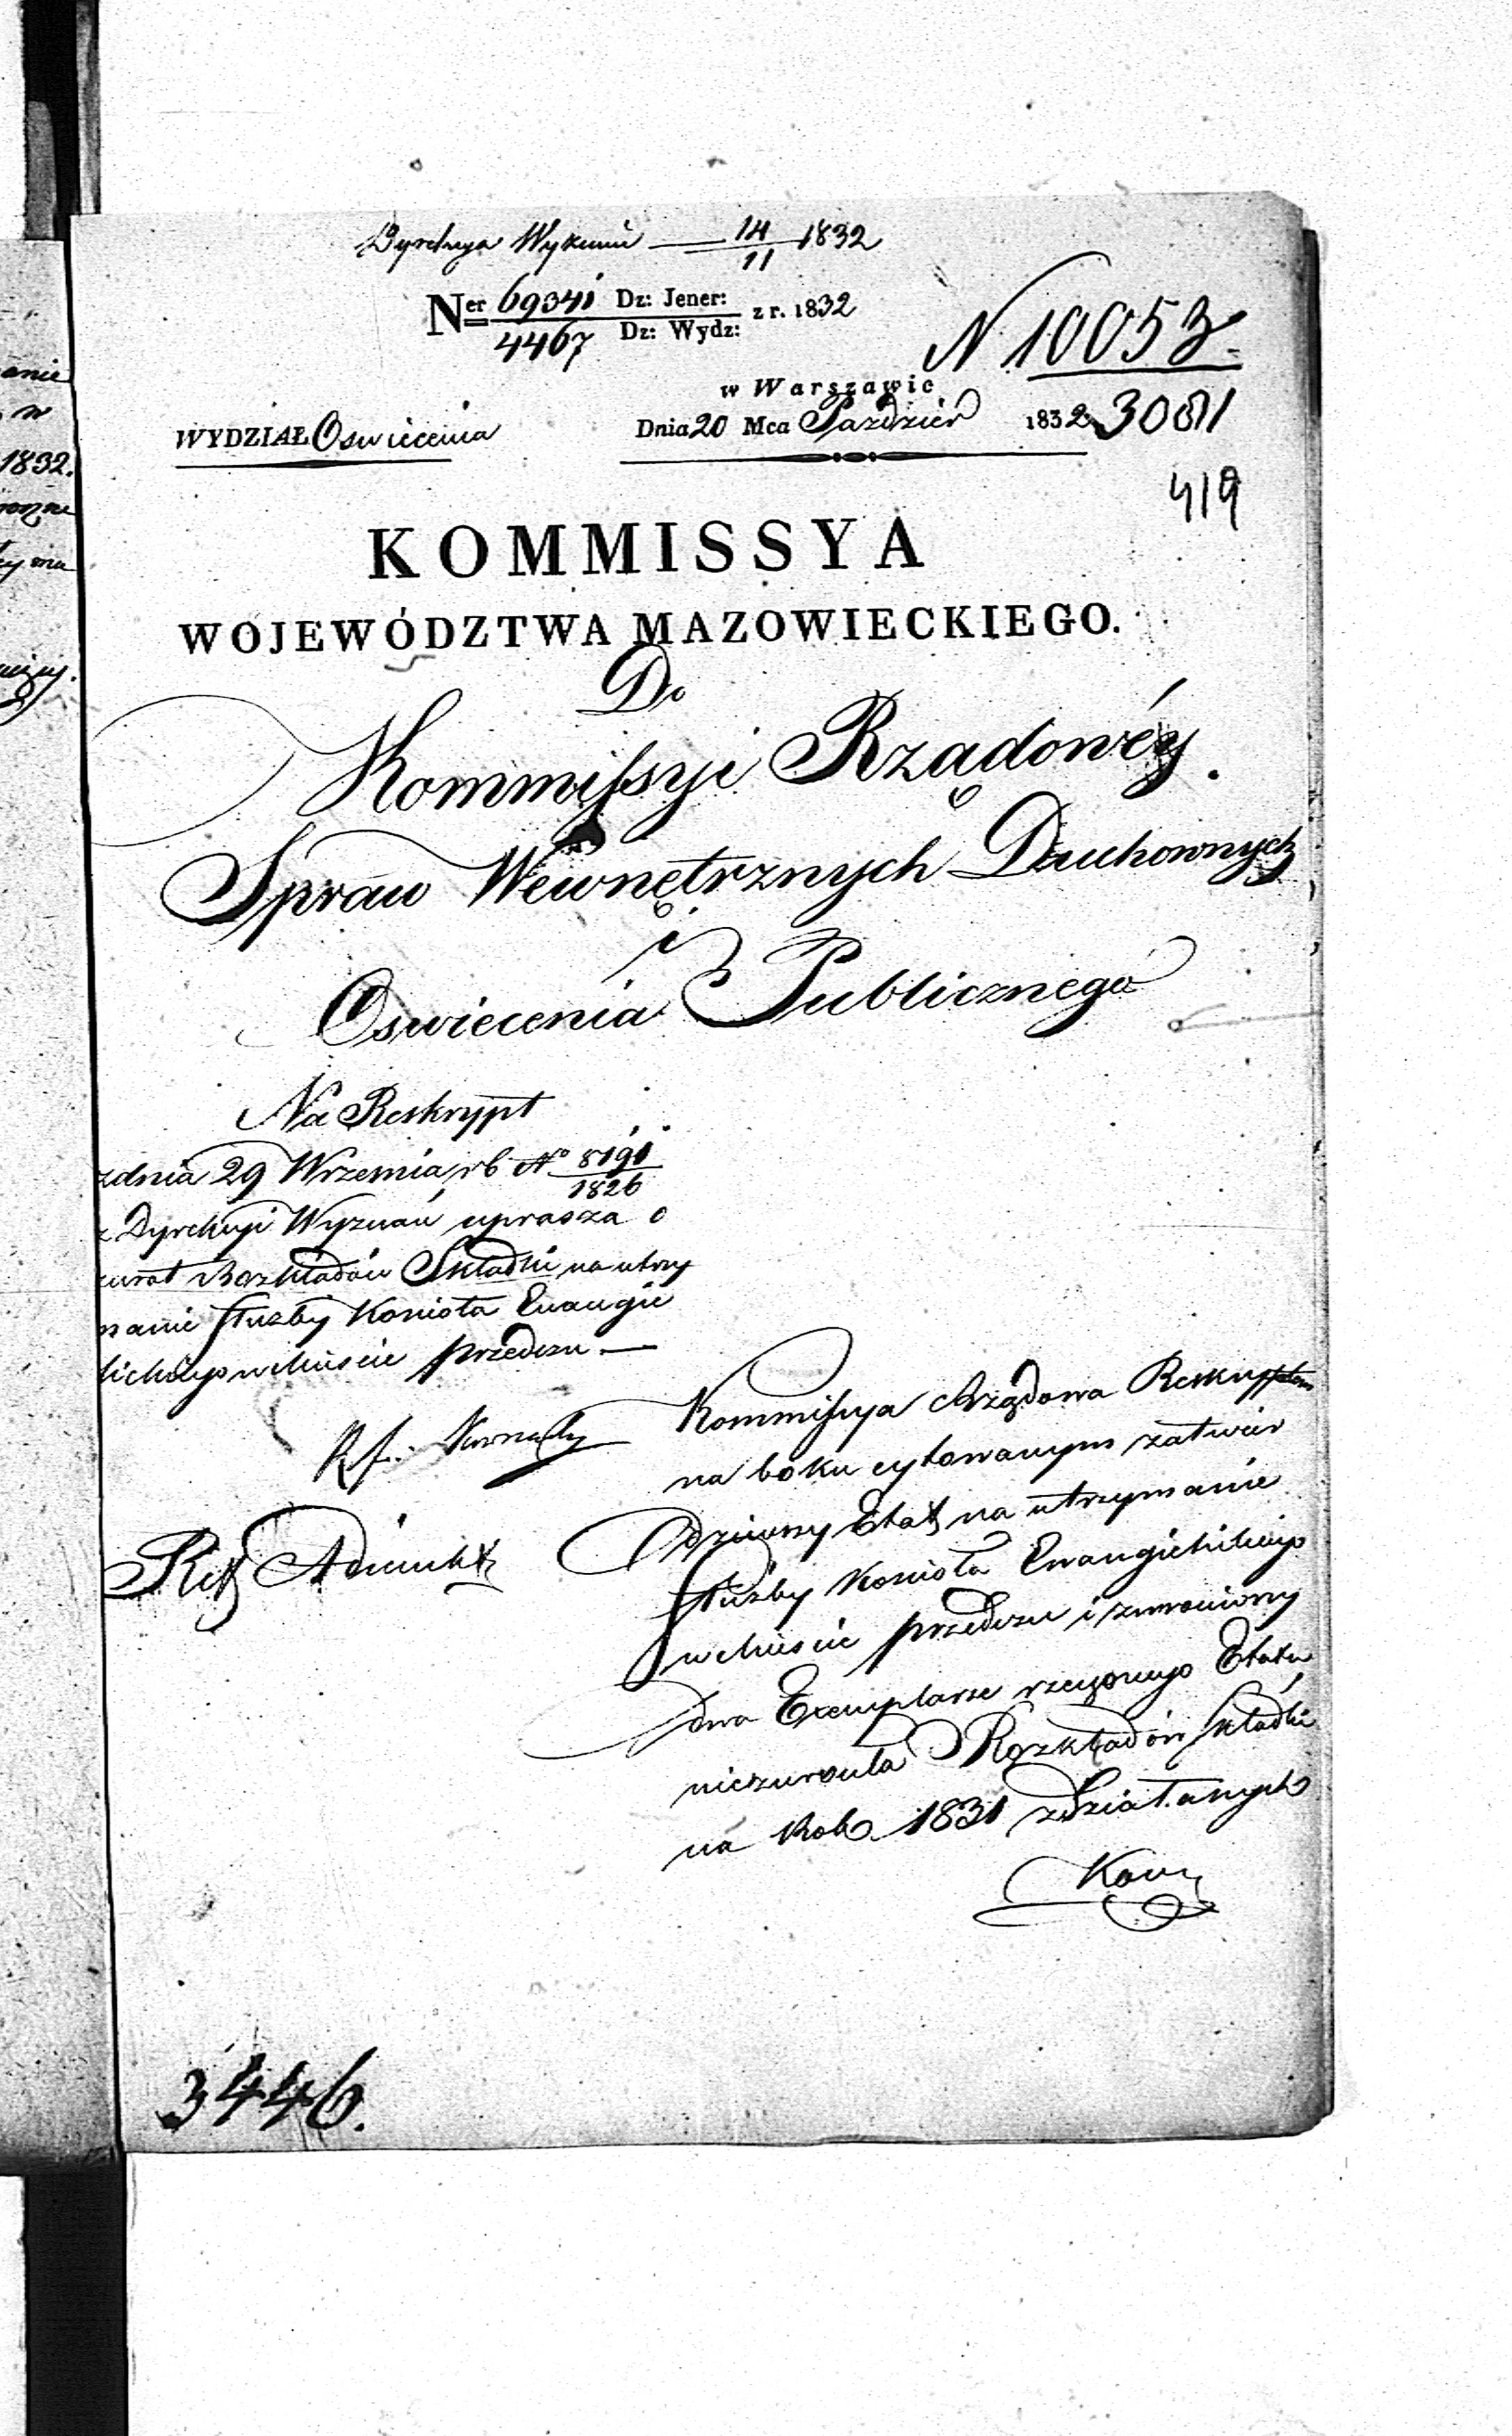 Dyrekcya Wyznań — 14/11 1832
Ner 69341 Dz: Jener: z r. 1832
4467 Dz: Wydz:
N 10053.
w Warszawie
WYDZIAŁ Oswiecenia
Dnia 20 Mca Paździer 1832 3081
419
KOMMISSYA
WOJEWÓDZTWA MAZOWIECKIEGO.
Do
Kommissyi Rządowéy
Spraw Wewnętrznych Duchownych
i
Oswiecenia Publicznego
Na Reskrypt
z dnia 29 Wrzesnia rb No 8191/1826
z Dyrekcyi Wyznań uprasza o
zwrot Rozkładów Składki na utrzy
manie Służby Koscioła Ewangie
lickiego w Miescie Przedczu —
Kommissya Rządowa Reskryptem
na boku cytowanym zatwier
dziwszy Etat na utrzymanie
Służby Koscioła Ewangielickiego
w Miescie Przedczu i zwrociwszy
dwa Exemplarze rzeczonego Etatu
niezwrociła Rozkładów Składki
na Rok 1831 zdziałanych
Kom
3446.
anie
w
1832.